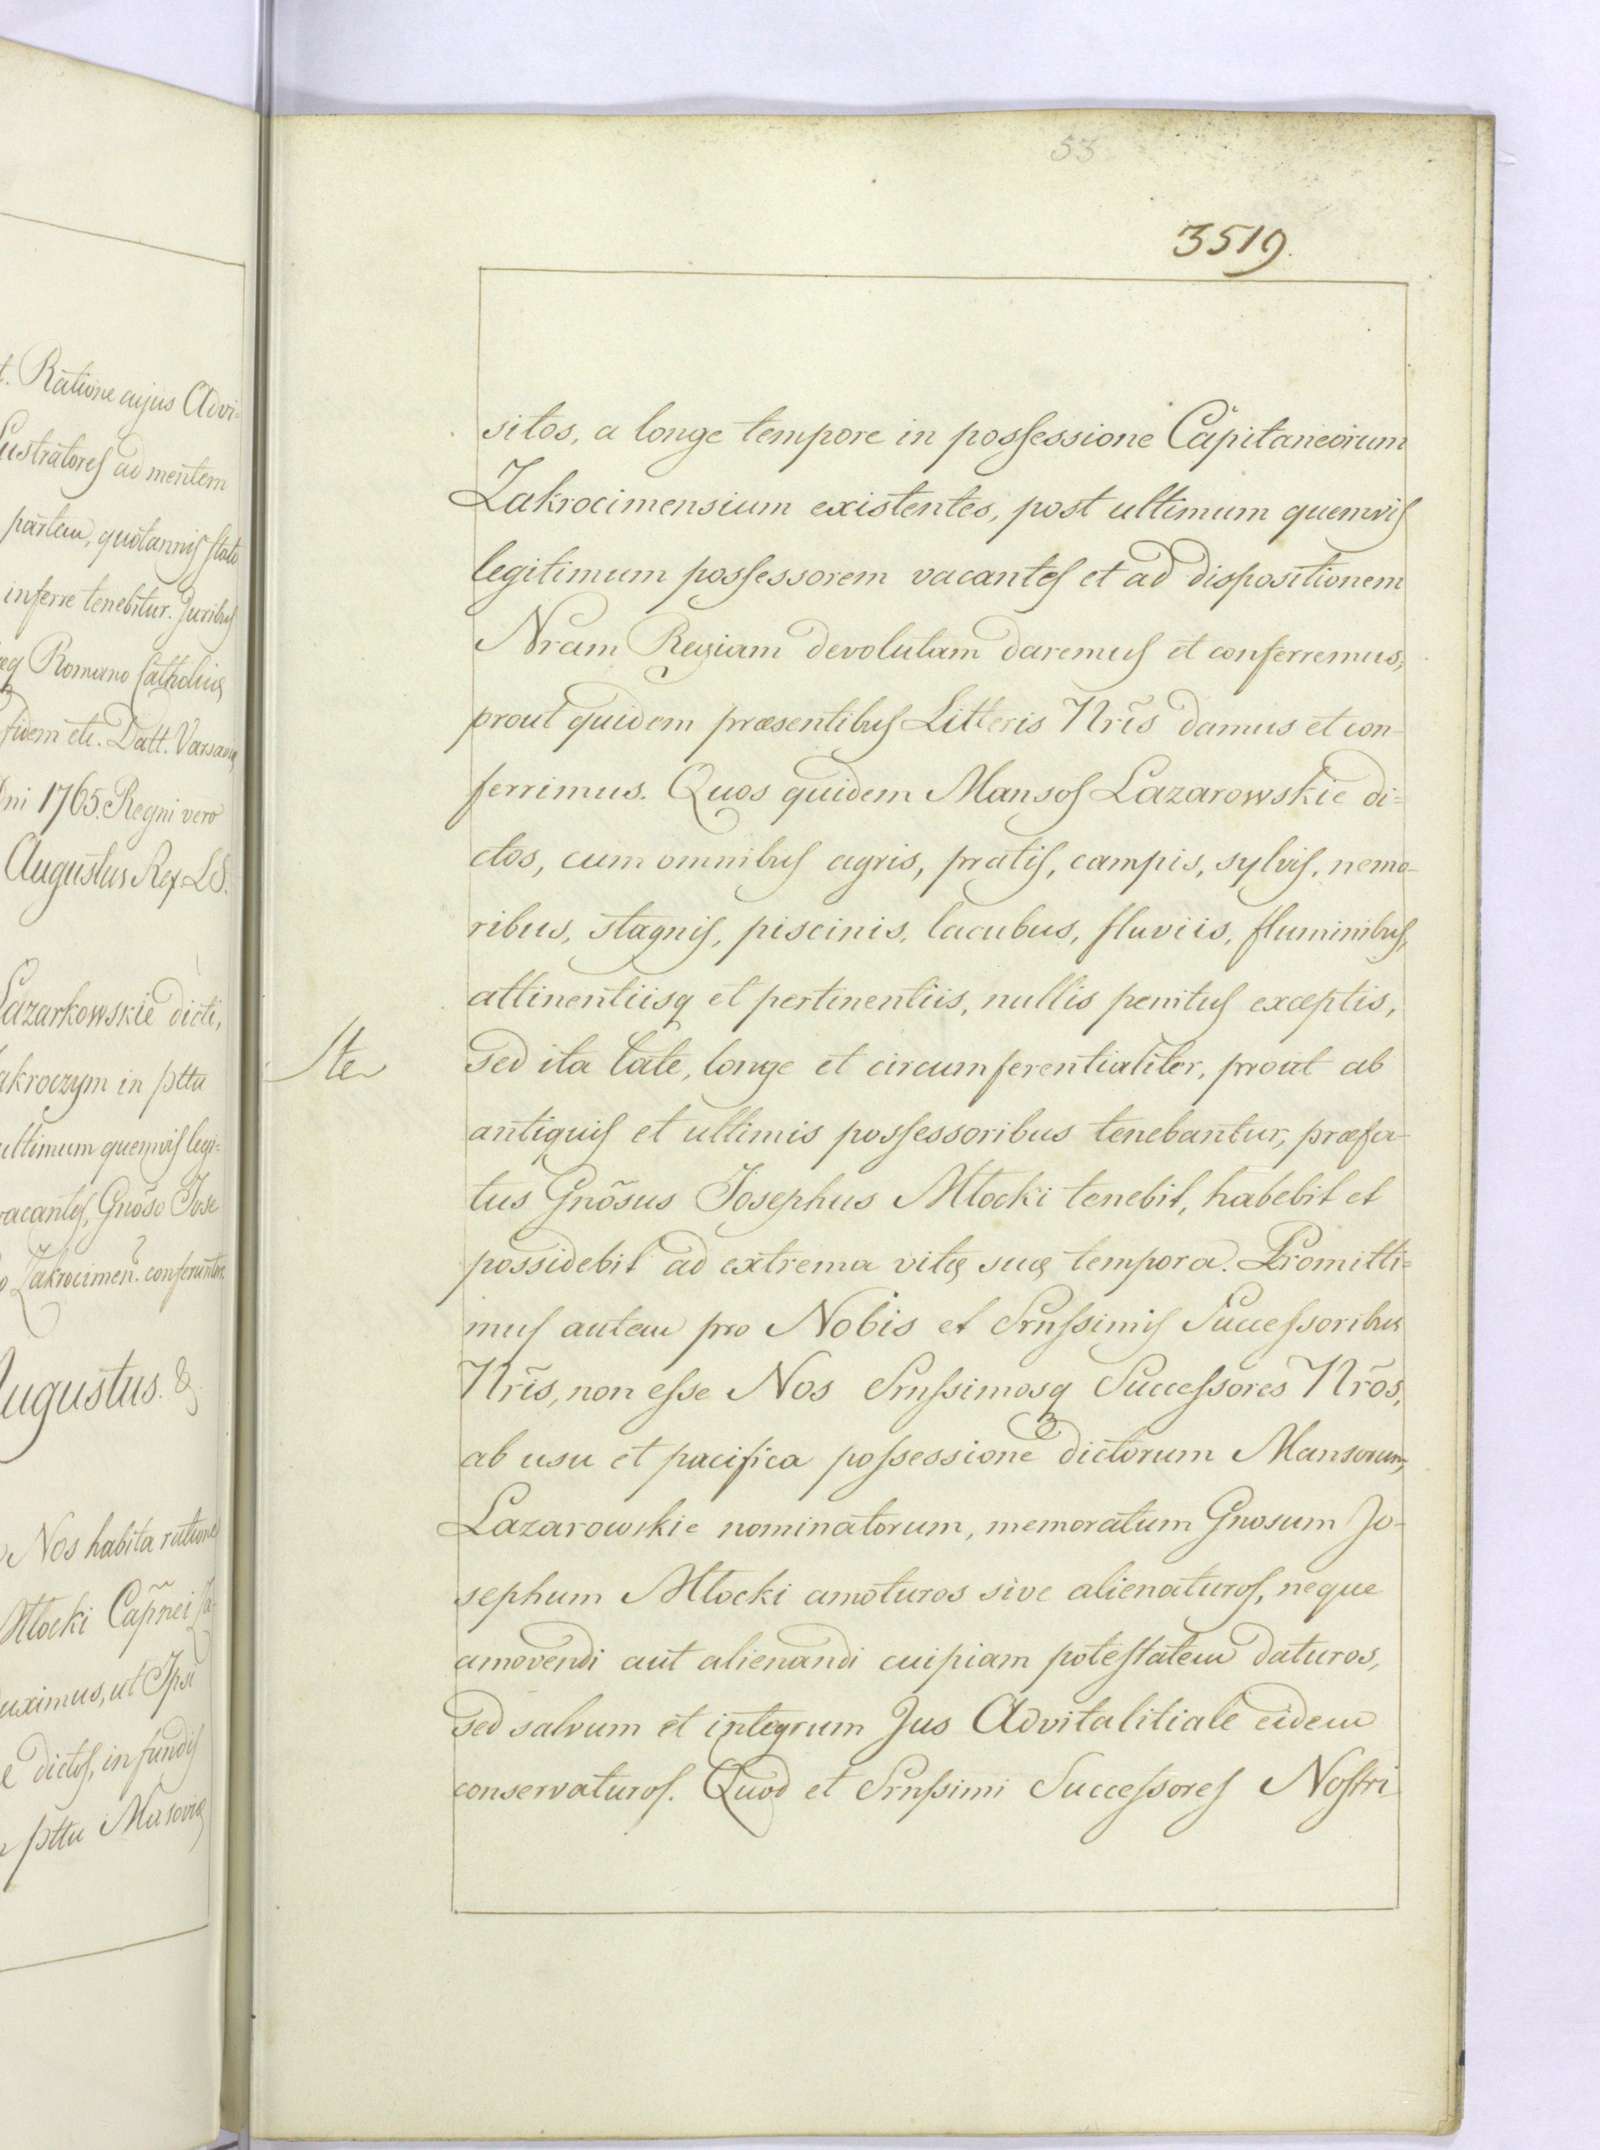 t. Ratione cujus Advi=
Lustratores ad mentem
partem, quotannis stato
inferre tenebitur. Juribus
Romano Catholicæ
fidem etc. Datt. Varsaviæ
Dni 1765. Regni vero
Augustus Rex LS.
Lazarkowskie dicti,
akroczym in pttu
ultimum quemvis legi=
vacantes, Gnõso Jose
Zakrocimen. conferuntur.
Augustus. &
Nos habita ratione
Młocki Capñei Za-
duximus, ut Ipsi
e dictos, in fundis
pttu Masoviæ
53
3519.
sitos, a longe tempore in possessione Capitaneorum
Zakrocimensium existentes, post ultimum quemvis
legitimum possessorem vacantes et ad dispositionem
Nram Regiam devolutam daremus et conferremus,
prout quidem præsentibus Litteris Nrĩs damus et con-
ferrimus. Quos quidem Mansos Lazarowskie di=
ctos, cum omnibus agris, pratis, campis, sylvis, nemo-
ribus, stagnis, piscinis, lacubus, fluviis, fluminibus,
attinentiisq et pertinentiis, nullis penitus exceptis,
Ste
sed ita late, longe et circumferentialiter, prout ab
antiquis et ultimis possessoribus tenebantur, præfa-
tus Gnõsus Josephus Młocki tenebit, habebit et
possidebit ad extrema vitę suę tempora. Promitti=
mus autem pro Nobis et Srnssimis Successoribus
Nrĩs, non esse Nos Srnssimosq Successores Nrõs,
ab usu et pacifica possessione dictorum Mansorum,
Lazarowskie nominatorum, memoratum Gnosum Jo-
sephum Młocki amoturos sive alienaturos, neque
amovendi aut alienandi cuipiam potestatem daturos,
sed salvum et integrum Jus Advitalitiale eidem
conservaturos. Quod et Srnssimi Successores Nostri